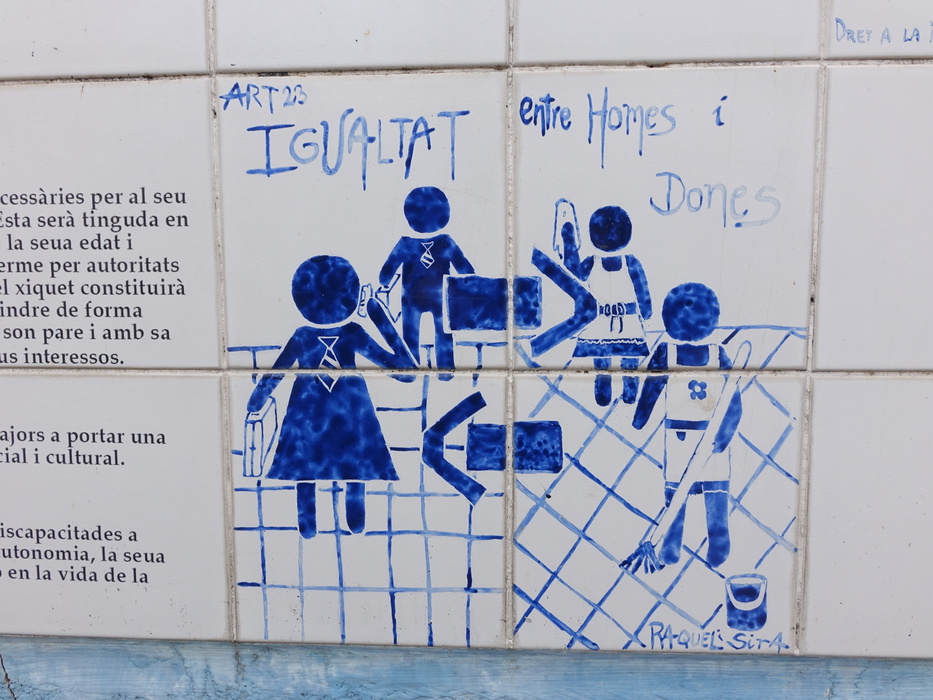 DRET A LA
cessàries per al seu
Esta serà tinguda en
la seua edat i
erme per autoritats
el xiquet constituirà
indre de forma
son pare i amb sa
us interessos.
ajors a portar una
cial i cultural.
iscapacitades a
utonomia, la seua
o en la vida de la
ART 23
IGUALTAT
entre Homes i
Dones
RAQUEL SITA.